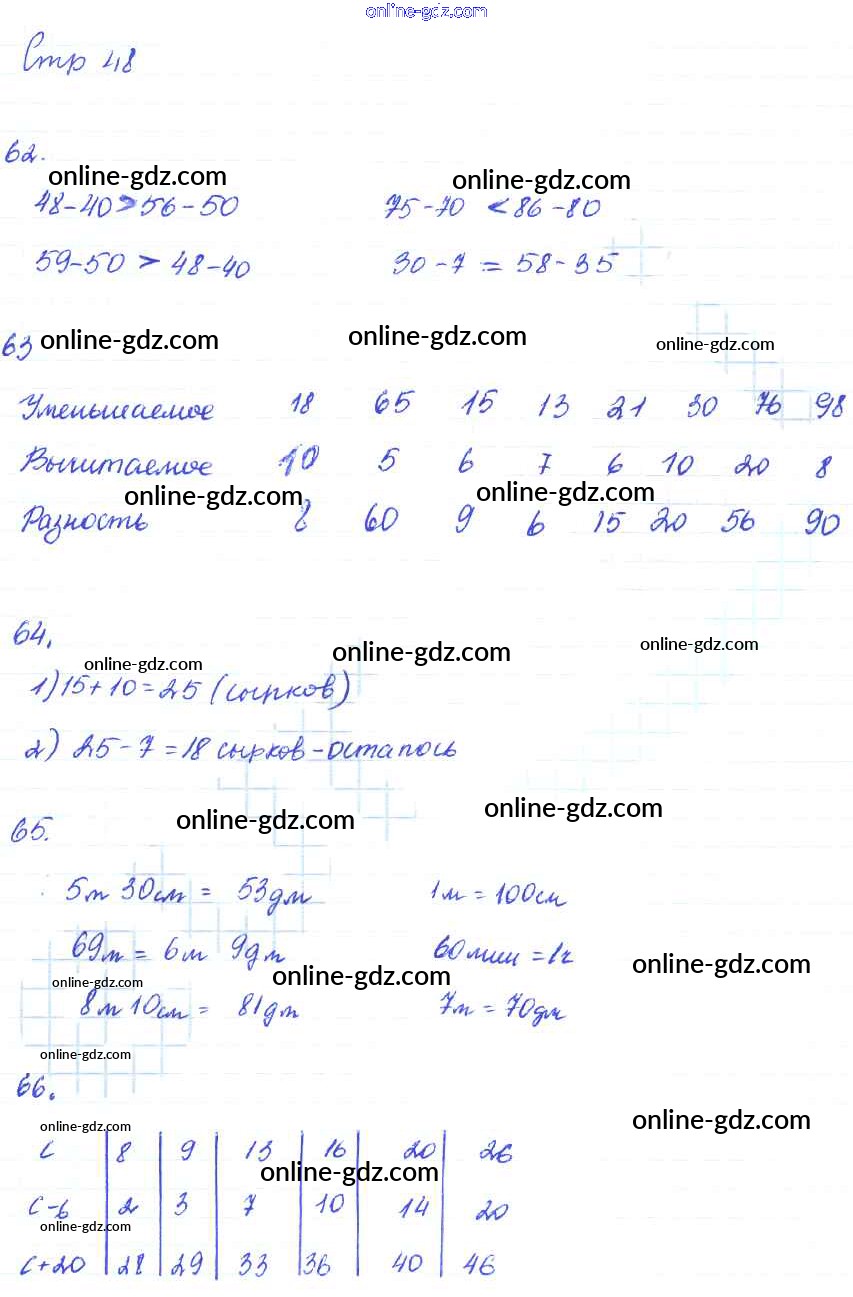 online-gdz.com
Стр 48
62.
online-gdz.com online-gdz.com
48-40>56-50 75-70 <86-80
59-50 > 48-40 30-7 = 58-35
63 online-gdz.com online-gdz.com online-gdz.com
Уменьшаемое 18 65 15 13 21 30 76 98
Вычитаемое 10 5 6 7 6 10 20 8
online-gdz.com online-gdz.com
Разность 8 60 9 6 15 20 56 90
64.
online-gdz.com online-gdz.com online-gdz.com
1)15+10=25 (сырков)
2) 25-7=18 сырков-осталось
65. online-gdz.com online-gdz.com
5м 30см = 53дм 1м=100см
69м= 6м 9дм 60мин=1ч
online-gdz.com online-gdz.com online-gdz.com
8м 10см= 81дм 7м=70дм
online-gdz.com
66.
online-gdz.com online-gdz.com
c 8 9 13 16 20 26
online-gdz.com
c-6 2 3 7 10 14 20
online-gdz.com
c+20 28 29 33 36 40 46